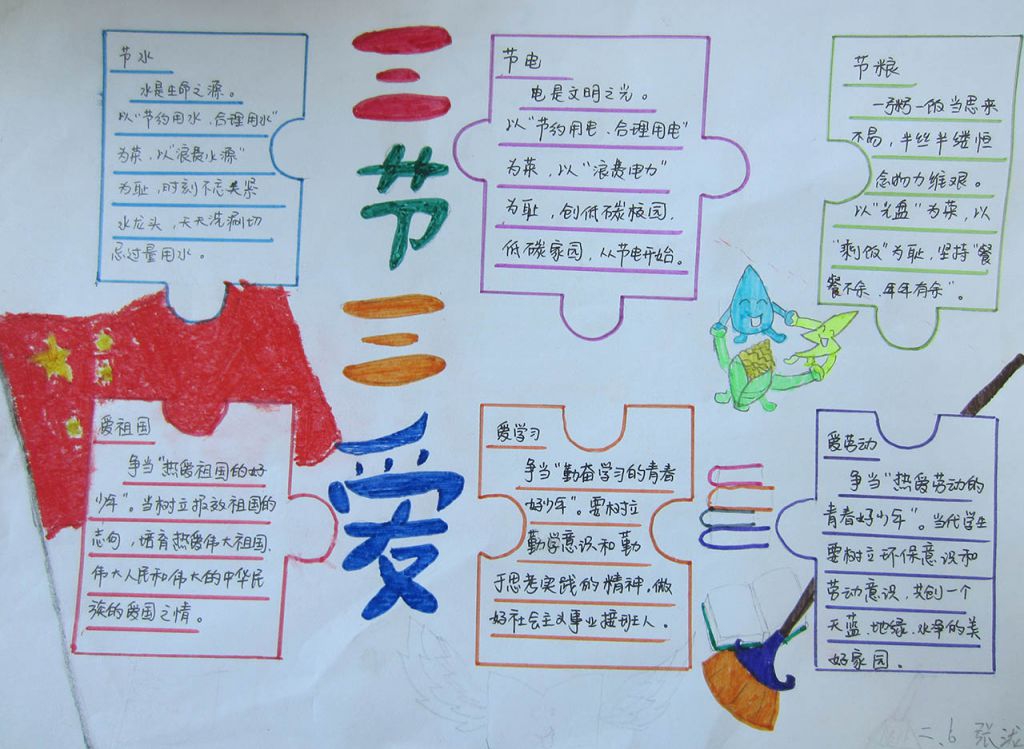 三节三爱
节水
水是生命之源。
以“节约用水、合理用水”
为荣，以“浪费水源”
为耻，时刻不忘关紧
水龙头，天天洗漱切
忌过量用水。
节电
电是文明之光。
以“节约用电、合理用电”
为荣，以“浪费电力”
为耻，创低碳校园，
低碳家园，从节电开始。
节粮
一粥一饭当思来
不易，半丝半缕恒
念物力维艰。
以“光盘”为荣，以
“剩饭”为耻，坚持“餐
餐不余、年年有余”。
爱祖国
争当“热爱祖国的好
少年”。当树立报效祖国的
志向，培育热爱伟大祖国、
伟大人民和伟大的中华民
族的爱国之情。
爱学习
争当“勤奋学习的青春
好少年”。要树立
勤学意识和勤
于思考实践的精神，做
好社会主义事业接班人。
爱劳动
争当“热爱劳动的
青春好少年”。当代学生
要树立环保意识和
劳动意识，共创一个
天蓝、地绿、水净的美
好家园。
二.6 张